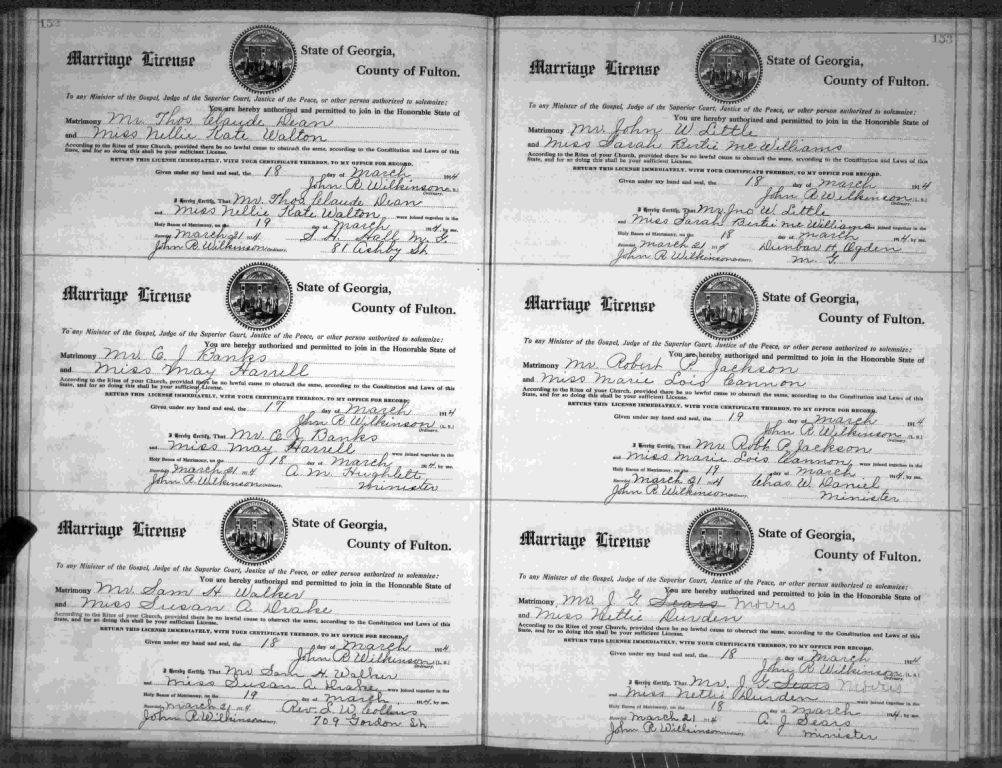 152
Marriage License
State of Georgia,
County of Fulton.
To any Minister of the Gospel, Judge of the Superior Court, Justice of the Peace, or other person authorized to solemnize:
You are hereby authorized and permitted to join in the Honorable State of
Matrimony Mr. Thos. Claude Dean
and Miss Nellie Kate Walton
According to the Rites of your Church, provided there be no lawful cause to obstruct the same, according to the Constitution and Laws of this
State, and for so doing this shall be your sufficient License.
RETURN THIS LICENSE IMMEDIATELY, WITH YOUR CERTIFICATE THEREON, TO MY OFFICE FOR RECORD.
Given under my hand and seal, the 18 day of March 1914
John R. Wilkinson (L. S.)
Ordinary.
I Hereby Certify, That Mr. Thos Claude Dean
and Miss Nellie Kate Walton were joined together in the
Holy Banns of Matrimony, on the 19 day of March 1914, by me.
Recorded March 21 1914 S. H. Hall M. G.
John R Wilkinson Ordinary. 81 Ashby St
Marriage License
State of Georgia,
County of Fulton.
To any Minister of the Gospel, Judge of the Superior Court, Justice of the Peace, or other person authorized to solemnize:
You are hereby authorized and permitted to join in the Honorable State of
Matrimony Mr. C. J Banks
and Miss May Harrell
According to the Rites of your Church, provided there be no lawful cause to obstruct the same, according to the Constitution and Laws of this
State, and for so doing this shall be your sufficient License.
RETURN THIS LICENSE IMMEDIATELY, WITH YOUR CERTIFICATE THEREON, TO MY OFFICE FOR RECORD.
Given under my hand and seal, the 17 day of March 1914
John R. Wilkinson (L. S.)
Ordinary.
I Hereby Certify, That Mr. C. J Banks
and Miss May Harrell were joined together in the
Holy Banns of Matrimony, on the 18 day of March 1914, by me.
Recorded March 21 1914 A. M. Hughlett
John R. Wilkinson Ordinary. Minister
Marriage License
State of Georgia,
County of Fulton.
To any Minister of the Gospel, Judge of the Superior Court, Justice of the Peace, or other person authorized to solemnize:
You are hereby authorized and permitted to join in the Honorable State of
Matrimony Mr. Sam H. Walker
and Miss Susan A Drake
According to the Rites of your Church, provided there be no lawful cause to obstruct the same, according to the Constitution and Laws of this
State, and for so doing this shall be your sufficient License.
RETURN THIS LICENSE IMMEDIATELY, WITH YOUR CERTIFICATE THEREON, TO MY OFFICE FOR RECORD.
Given under my hand and seal, the 18 day of March 1914
John R. Wilkinson (L. S.)
Ordinary.
I Hereby Certify, That Mr Sam H. Walker
and Miss Susan A. Drake were joined together in the
Holy Banns of Matrimony, on the 19 day of March, 1914, by me.
Recorded March 21 1914 Rev. L. W. Collins
John R Wilkinson Ordinary. 709 Gordon St
153
Marriage License
State of Georgia,
County of Fulton.
To any Minister of the Gospel, Judge of the Superior Court, Justice of the Peace, or other person authorized to solemnize:
You are hereby authorized and permitted to join in the Honorable State of
Matrimony Mr. John W Little
and Miss Sarah Birtie McWilliams
According to the Rites of your Church, provided there be no lawful cause to obstruct the same, according to the Constitution and Laws of this
State, and for so doing this shall be your sufficient License.
RETURN THIS LICENSE IMMEDIATELY, WITH YOUR CERTIFICATE THEREON, TO MY OFFICE FOR RECORD.
Given under my hand and seal, the 18 day of March 1914
John R Wilkinson (L. S.)
Ordinary.
I Hereby Certify, That Mr. Jno W. Little
and Miss Sarah Birtie McWilliams were joined together in the
Holy Banns of Matrimony, on the 18 day of March 1914, by me.
Recorded March 21 1914 Dunbar H. Ogden
John R. Wilkinson Ordinary. M. G.
Marriage License
State of Georgia,
County of Fulton.
To any Minister of the Gospel, Judge of the Superior Court, Justice of the Peace, or other person authorized to solemnize:
You are hereby authorized and permitted to join in the Honorable State of
Matrimony Mr. Robert P. Jackson
and Miss Marie Lois Cannon
According to the Rites of your Church, provided there be no lawful cause to obstruct the same, according to the Constitution and Laws of this
State, and for so doing this shall be your sufficient License.
RETURN THIS LICENSE IMMEDIATELY, WITH YOUR CERTIFICATE THEREON, TO MY OFFICE FOR RECORD.
Given under my hand and seal, the 19 day of March 1914
John R. Wilkinson (L. S.)
Ordinary.
I Hereby Certify, That Mr Robt P. Jackson
and Miss Marie Lois Cannon were joined together in the
Holy Banns of Matrimony, on the 19 day of March 1914, by me.
Recorded March 21 1914 Chas. W. Daniel
John R. Wilkinson Ordinary. Minister
Marriage License
State of Georgia,
County of Fulton.
To any Minister of the Gospel, Judge of the Superior Court, Justice of the Peace, or other person authorized to solemnize:
You are hereby authorized and permitted to join in the Honorable State of
Matrimony, Mr. J. G. Sears Morris
and Miss Nettie Durden
According to the Rites of your Church, provided there be no lawful cause to obstruct the same, according to the Constitution and Laws of this
State, and for so doing this shall be your sufficient License.
RETURN THIS LICENSE IMMEDIATELY, WITH YOUR CERTIFICATE THEREON, TO MY OFFICE FOR RECORD.
Given under my hand and seal, the 18 day of March 1914
John R. Wilkinson (L. S.)
Ordinary.
I Hereby Certify, That Mr. J G Sears Morris
and Miss Nettie Durden were joined together in the
Holy Banns of Matrimony, on the 18 day of March 1914, by me.
Recorded March 21 1914 A. J. Sears
John R. Wilkinson Ordinary. Minister